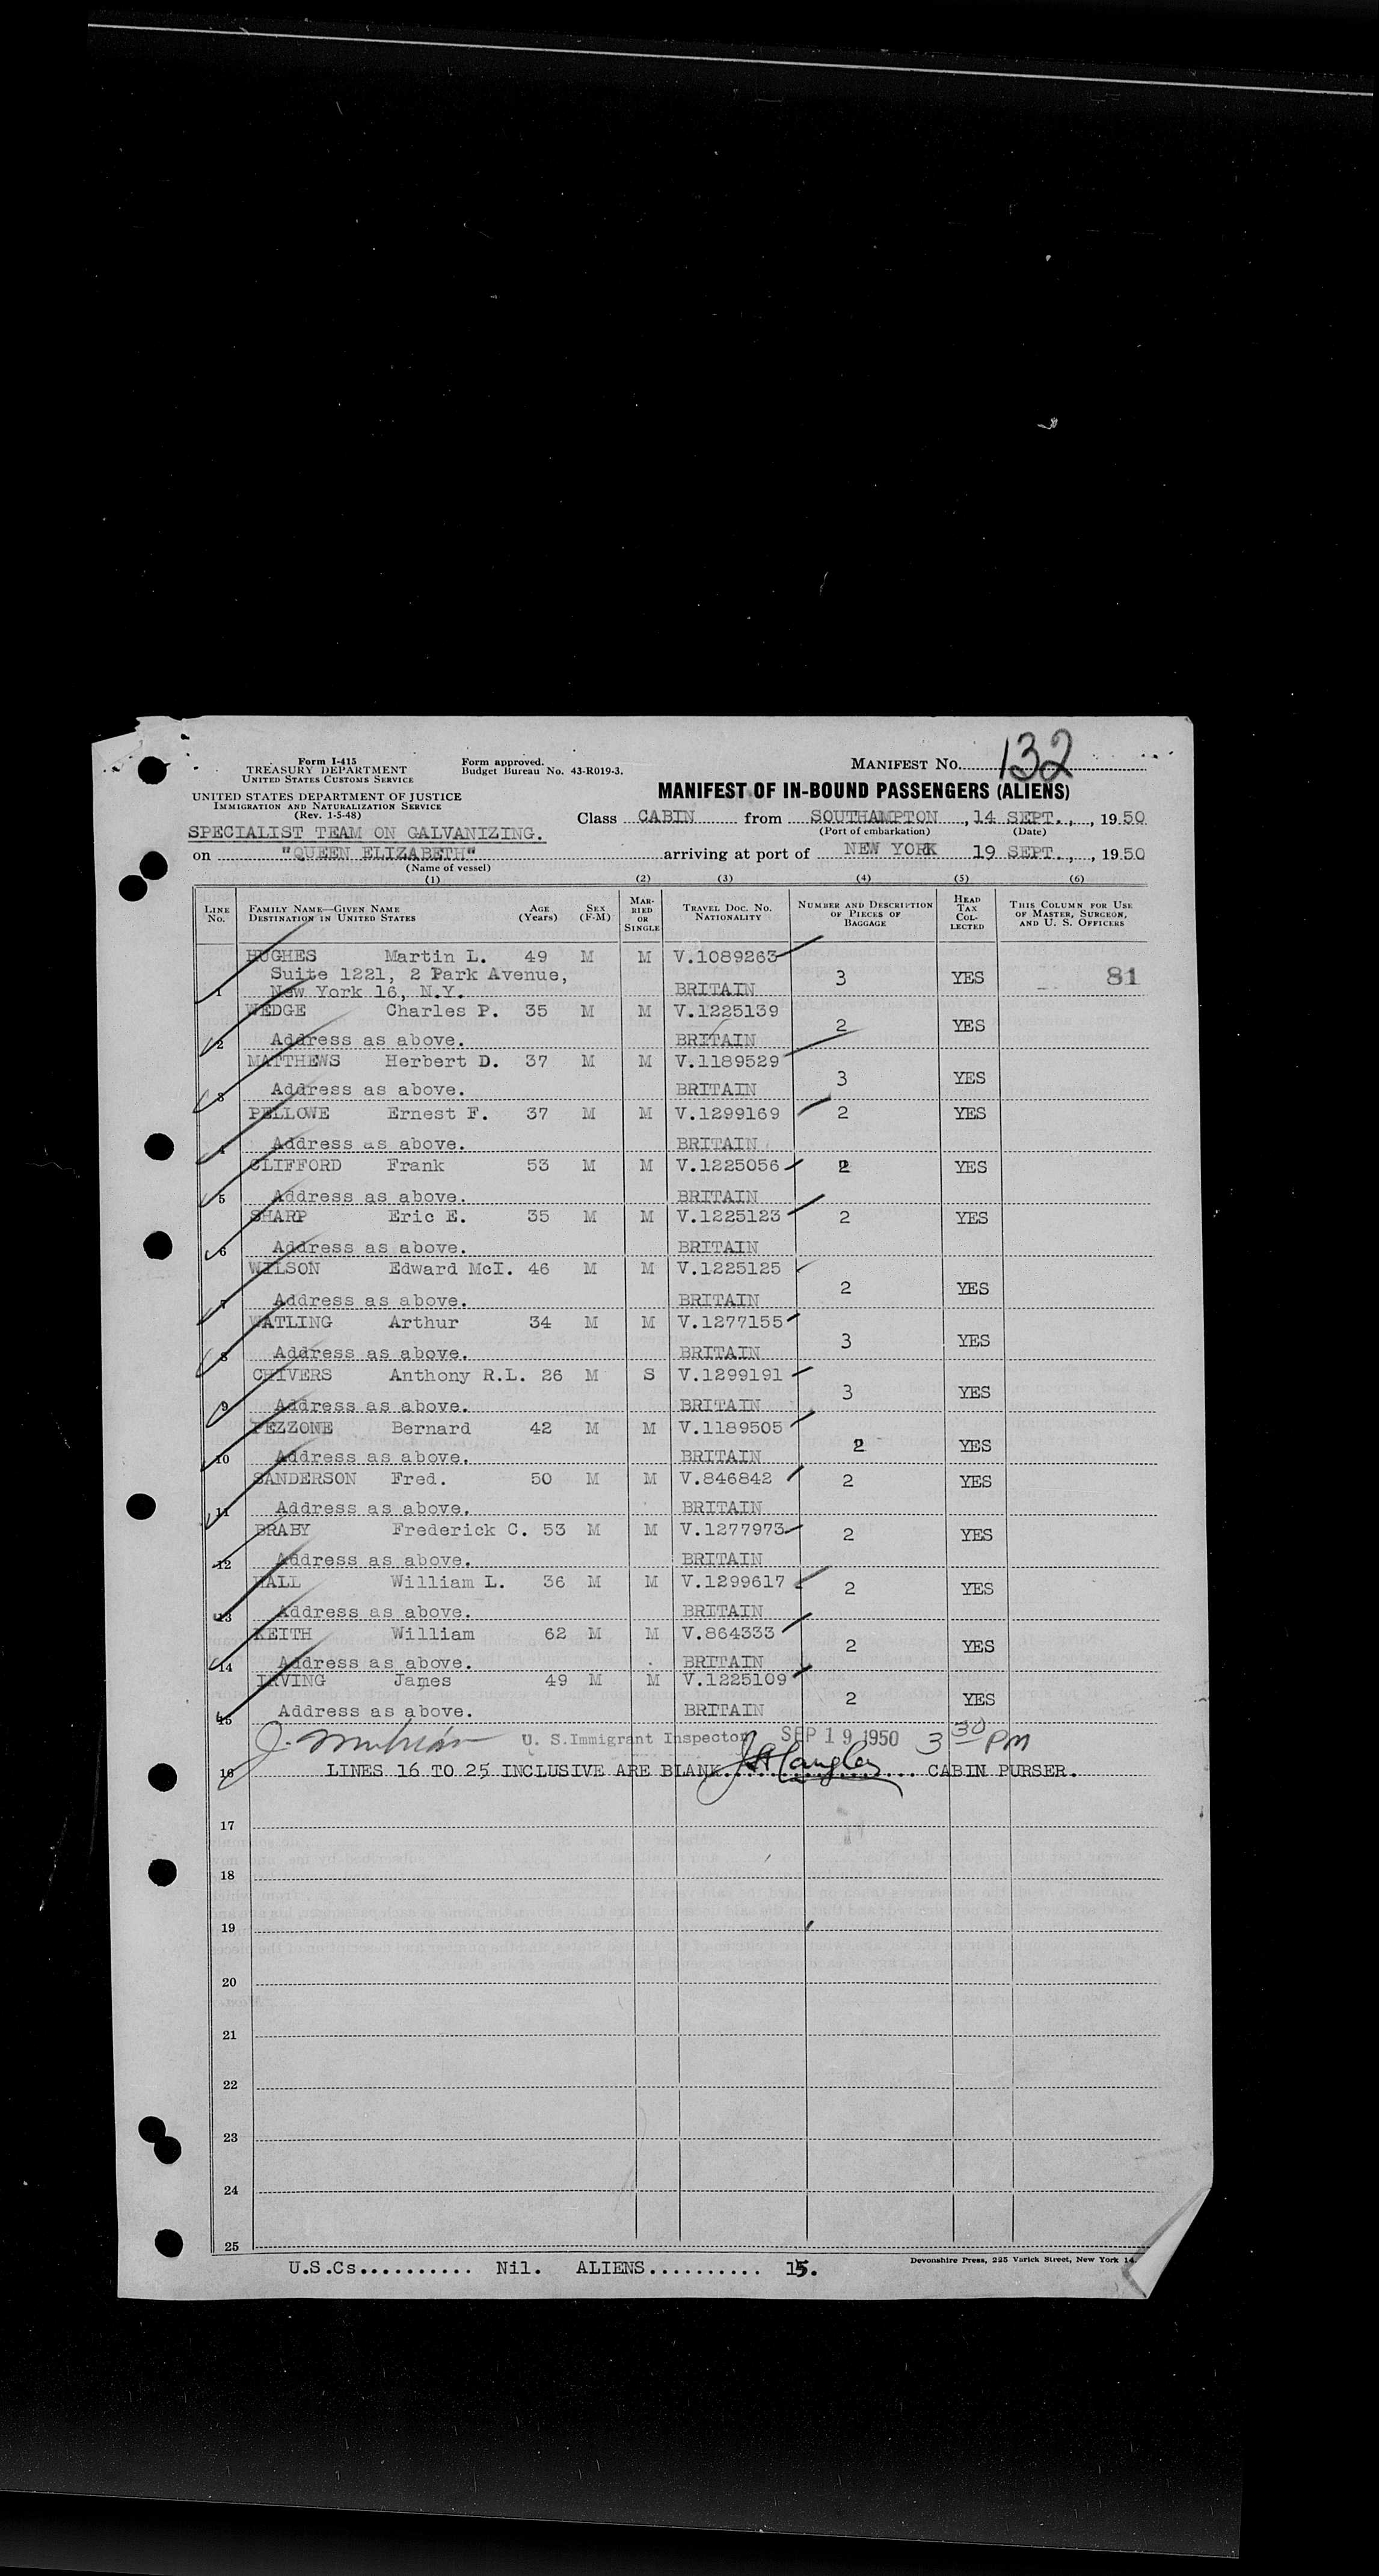 Form I-415
TREASURY DEPARTMENT
UNITED STATES CUSTOMS SERVICE
Form approved.
Budget Bureau No. 43-R019-3.
MANIFEST NO. 132
UNITED STATES DEPARTMENT OF JUSTICE
IMMIGRATION AND NATURALIZATION SERVICE
(Rev. 1-5-48)
MANIFEST OF IN-BOUND PASSENGERS (ALIENS)
Class CABIN from SOUTHAMPTON, 14 SEPT., 1950
(Port of embarkation) (Date)
SPECIALIST TEAM ON GALVANIZING.
on "QUEEN ELIZABETH" arriving at port of NEW YORK 19 SEPT., 1950
(Name of vessel)
(1) (2) (3) (4) (5) (6)
LINE NO. FAMILY NAME—GIVEN NAME DESTINATION IN UNITED STATES AGE (Years) SEX (F-M) MARRIED OR SINGLE TRAVEL DOC. NO. NATIONALITY NUMBER AND DESCRIPTION OF PIECES OF BAGGAGE HEAD TAX COLLECTED THIS COLUMN FOR USE OF MASTER, SURGEON, AND U. S. OFFICERS
HUGHES Martin L. 49 M M V.1089263
Suite 1221, 2 Park Avenue, 3 YES 81
1 New York 16, N.Y. BRITAIN
WEDGE Charles P. 35 M M V.1225139 2 YES
2 Address as above. BRITAIN
MATTHEWS Herbert D. 37 M M V.1189529 3 YES
3 Address as above. BRITAIN
PELLOWE Ernest F. 37 M M V.1299169 2 YES
4 Address as above. BRITAIN
CLIFFORD Frank 53 M M V.1225056 2 YES
5 Address as above. BRITAIN
SHARP Eric E. 35 M M V.1225123 2 YES
6 Address as above. BRITAIN
WILSON Edward McI. 46 M M V.1225125 2 YES
7 Address as above. BRITAIN
WATLING Arthur 34 M M V.1277155 3 YES
8 Address as above. BRITAIN
CHIVERS Anthony R.L. 26 M S V.1299191 3 YES
9 Address as above. BRITAIN
PEZZONE Bernard 42 M M V.1189505 2 YES
10 Address as above. BRITAIN
SANDERSON Fred. 50 M M V.846842 2 YES
11 Address as above. BRITAIN
BRABY Frederick C. 53 M M V.1277973 2 YES
12 Address as above. BRITAIN
HALL William L. 36 M M V.1299617 2 YES
13 Address as above. BRITAIN
KEITH William 62 M M V.864333 2 YES
14 Address as above. BRITAIN
IRVING James 49 M M V.1225109 2 YES
15 Address as above. BRITAIN
U. S. Immigrant Inspector SEP 19 1950 3 30 PM
16 LINES 16 TO 25 INCLUSIVE ARE BLANK. CABIN PURSER.
17
18
19
20
21
22
23
24
25
Devonshire Press, 225 Varick Street, New York 14
U.S.Cs.......... Nil. ALIENS.......... 15.